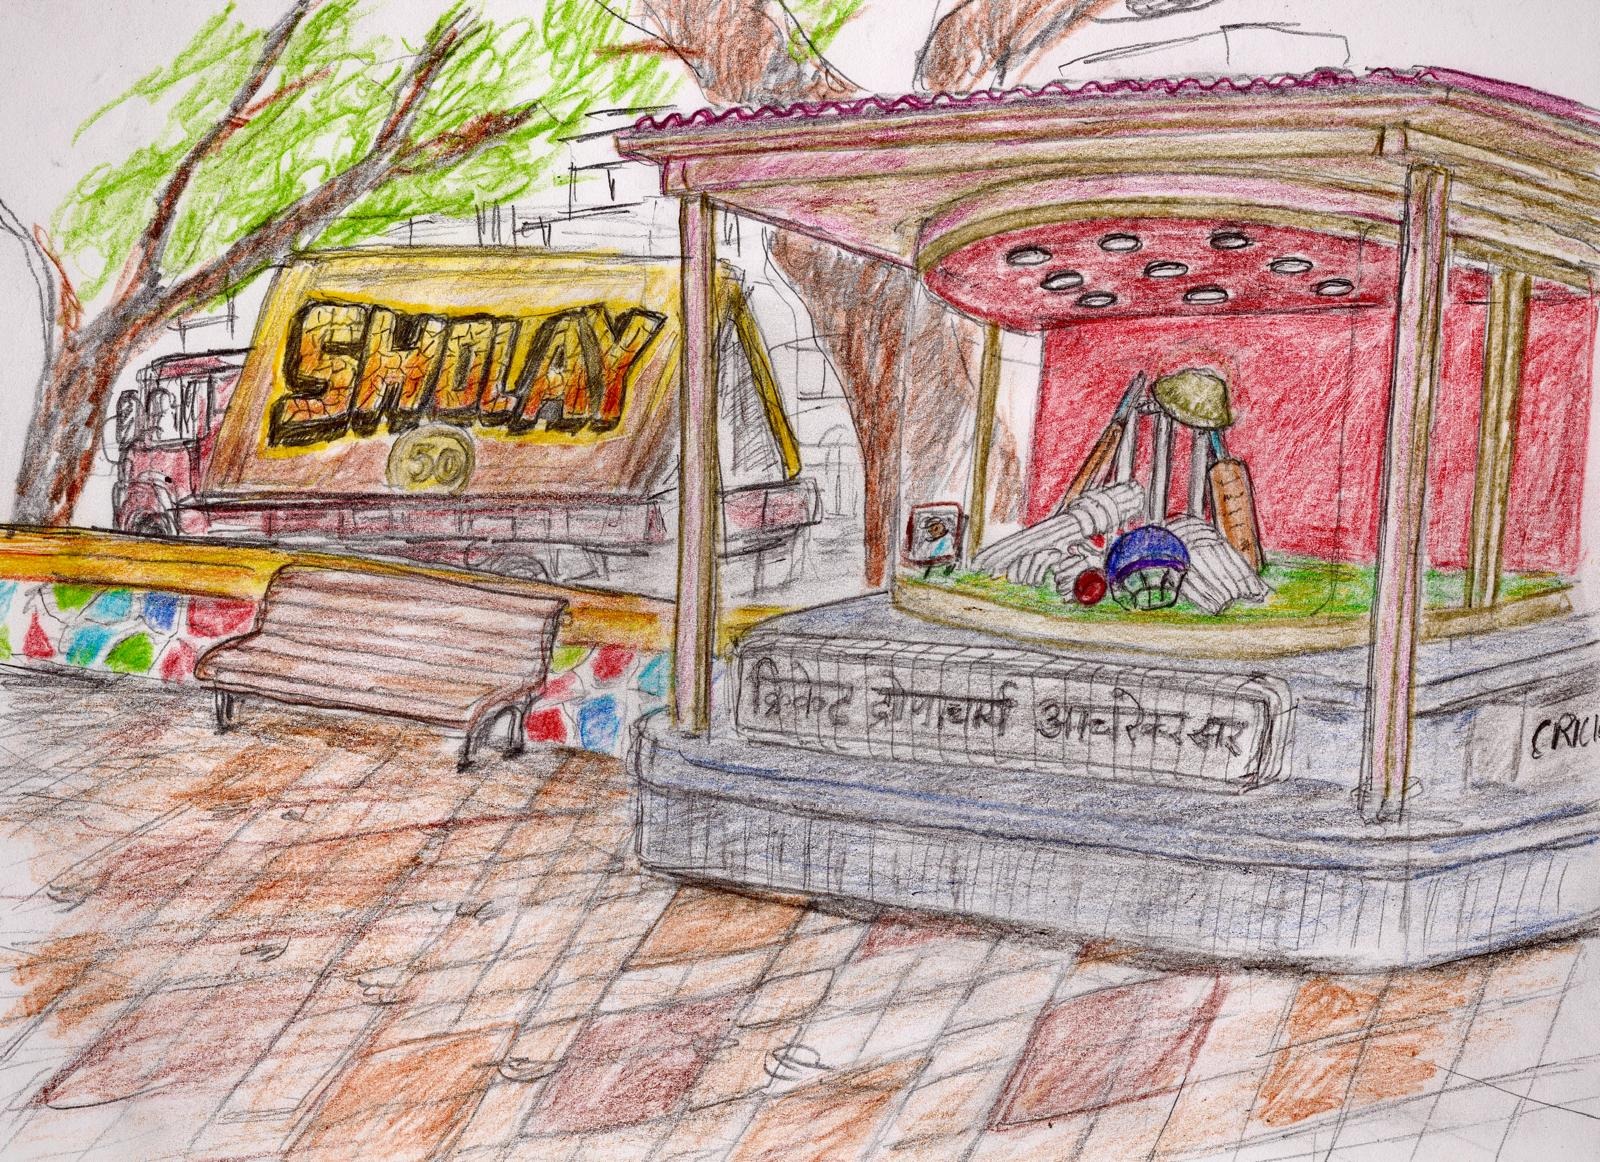 SHOLAY
50
क्रिकेट द्रोणाचार्य आचरेकर सर
CRIC